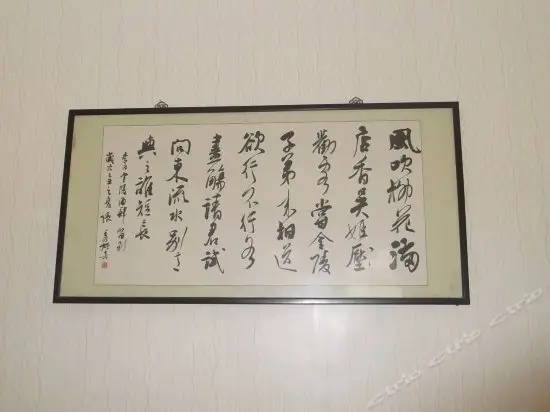 風吹柳花滿
店香吳姬壓
勸客當金陵
子弟來相送
欲行不行各
盡觴請君試
問東流水別意
與之誰短長
李白金陵酒肆留別
歲次之夏張
Ctrip Ctrip Ctrip